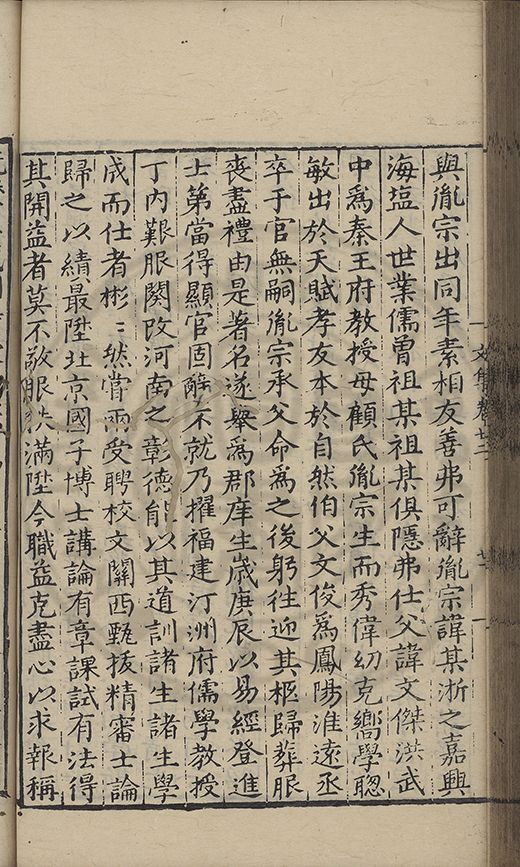 與胤宗出同年素相友善弗可辭胤宗諱某浙之嘉興
海塩人世業儒曾祖某祖某俱隱弗仕父諱文傑洪武
中爲秦王府教授母顧氏胤宗生而秀偉幼克嚮學聰
敏出於天賦孝友本於自然伯父文俊爲鳳陽淮遠丞
卒于官無嗣胤宗承父命爲之後躬往迎其柩歸葬服
喪盡禮由是著名遂舉爲郡庠生歲庚辰以易經登進
士第當得顯官固辭不就乃擢福建汀洲府儒學教授
丁内艱服闋改河南之彰德能以其道訓諸生諸生學
成而仕者彬〻然嘗兩受聘校文關西甄拔精審士論
歸之以績最陞北京國子博士講論有章課試有法得
其開益者莫不敬服秩滿陞今職益克盡心以求報稱
文集卷廿二